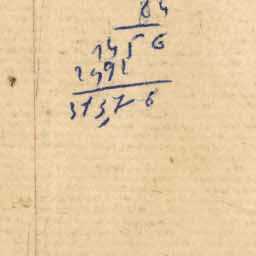 84
1456
2912
31576